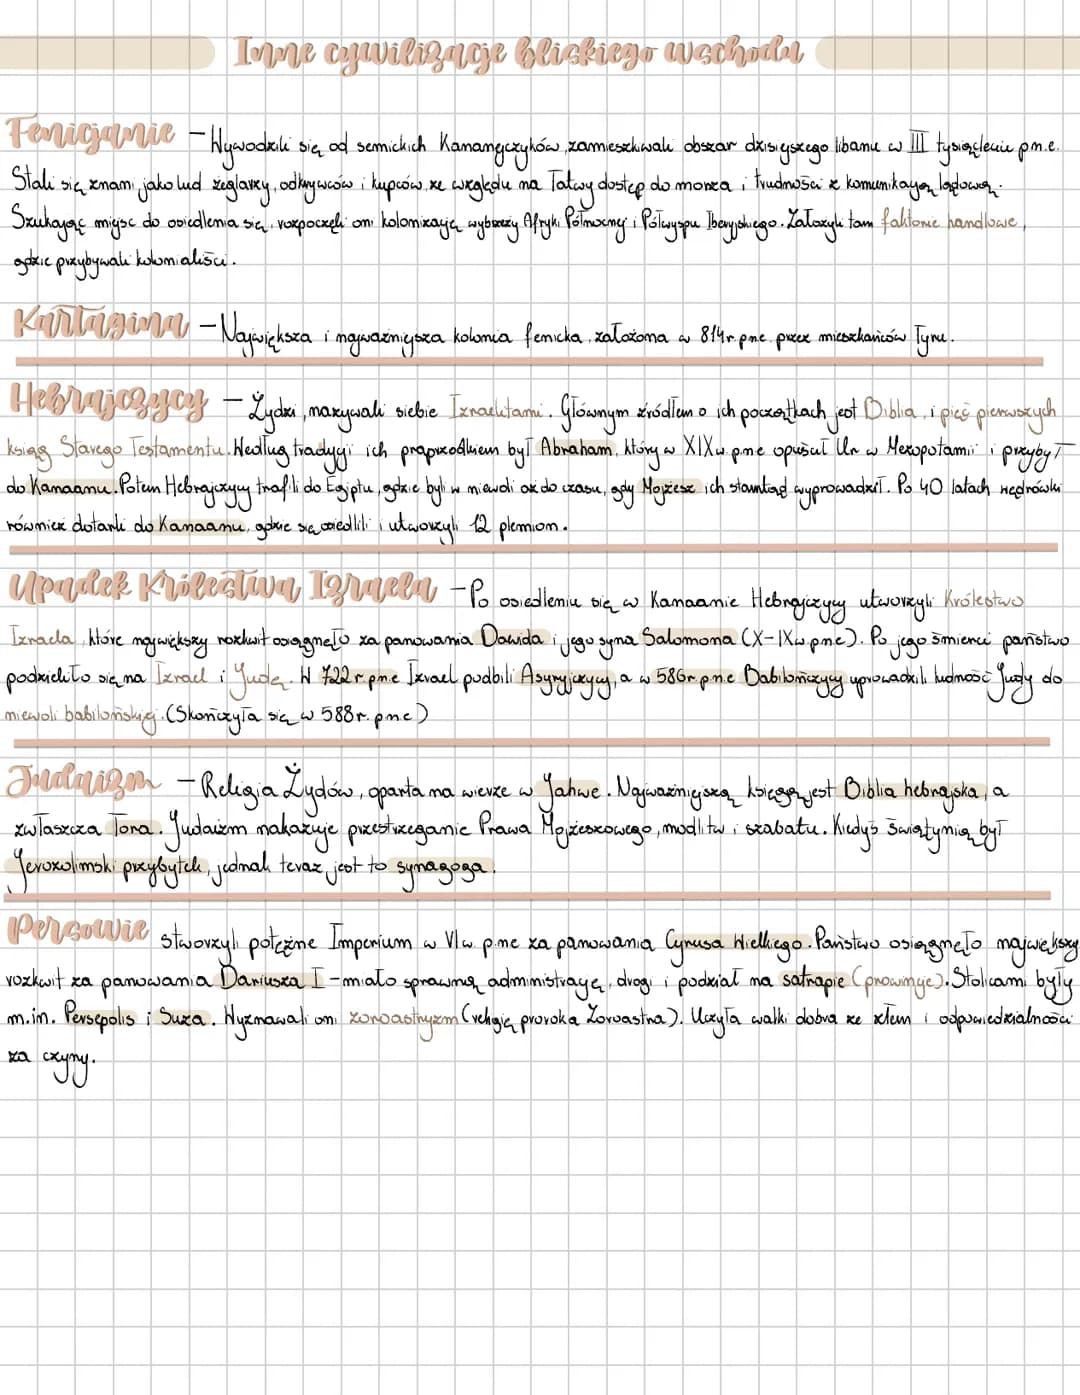 Inne cywilizacje bliskiego wschodu
Fenicjanie - Wywodzili się od semickich Kananejczyków, zamieszkiwali obszar dzisiejszego libanu w III tysiącleciu p.n.e.
Stali się znani, jako lud żeglarzy, odkrywców i kupców, ze względu na łatwy dostęp do morza i trudności z komunikacją lądową.
Szukając miejsc do osiedlenia się, rozpoczęli oni kolonizację wybrzeży Afryki Północnej i Półwyspu Iberyjskiego. Założyli tam faktorie handlowe,
gdzie przybywali kolonialiści.
Kartagina - Największa i najważniejsza kolonia fenicka, założona w 814r. pne. przez mieszkańców Tyru.
Hebrajczycy - Żydzi, nazywali siebie Izraelitami. Głównym źródłem o ich początkach jest Biblia, i pięć pierwszych
ksiąg Starego Testamentu. Według tradycji ich praprzodkiem był Abraham, który w XIXw. p.ne opuścił Ur w Mezopotamii i przybył
do Kanaanu. Potem Hebrajczycy trafili do Egiptu, gdzie byli w niewoli aż do czasu, gdy Mojżesz ich stamtąd wyprowadził. Po 40 latach wędrówki
również dotarli do Kanaanu, gdzie się osiedlili i utworzyli 12 plemion.
Upadek Królestwa Izraela - Po osiedleniu się w Kanaanie Hebrajczycy utworzyli Królestwo
Izraela, które największy rozkwit osiągnęło za panowania Dawida i jego syna Salomona (X-IXw. pne). Po jego śmierci państwo
podzieliło się na Izrael i Judę. W 722r. pne Izrael podbili Asyryjczycy, a w 586r. p.n.e Babilończycy uprowadzili ludność Judy do
niewoli babilońskiej. (Skończyła się w 588r. pne)
Judaizm - Religia Żydów, oparta na wierze w Jahwe. Najważniejszą księgą jest Biblia hebrajska, a
zwłaszcza Tora. Judaizm nakazuje przestrzeganie Prawa Mojżeszowego, modlitw i szabatu. Kiedyś świątynią był
Jerozolimski przybytek, jednak teraz jest to synagoga.
Persowie stworzyli potężne Imperium w VIw. p.ne za panowania Cyrusa Wielkiego. Państwo osiągnęło największy
rozkwit za panowania Dariusza I - miało sprawną administrację, drogi i podział na satrapie (prowincje). Stolicami były
m.in. Persepolis i Suza. Wyznawali oni zoroastryzm (religię proroka Zoroastra). Uczyła walki dobra ze złem i odpowiedzialności
za czyny.